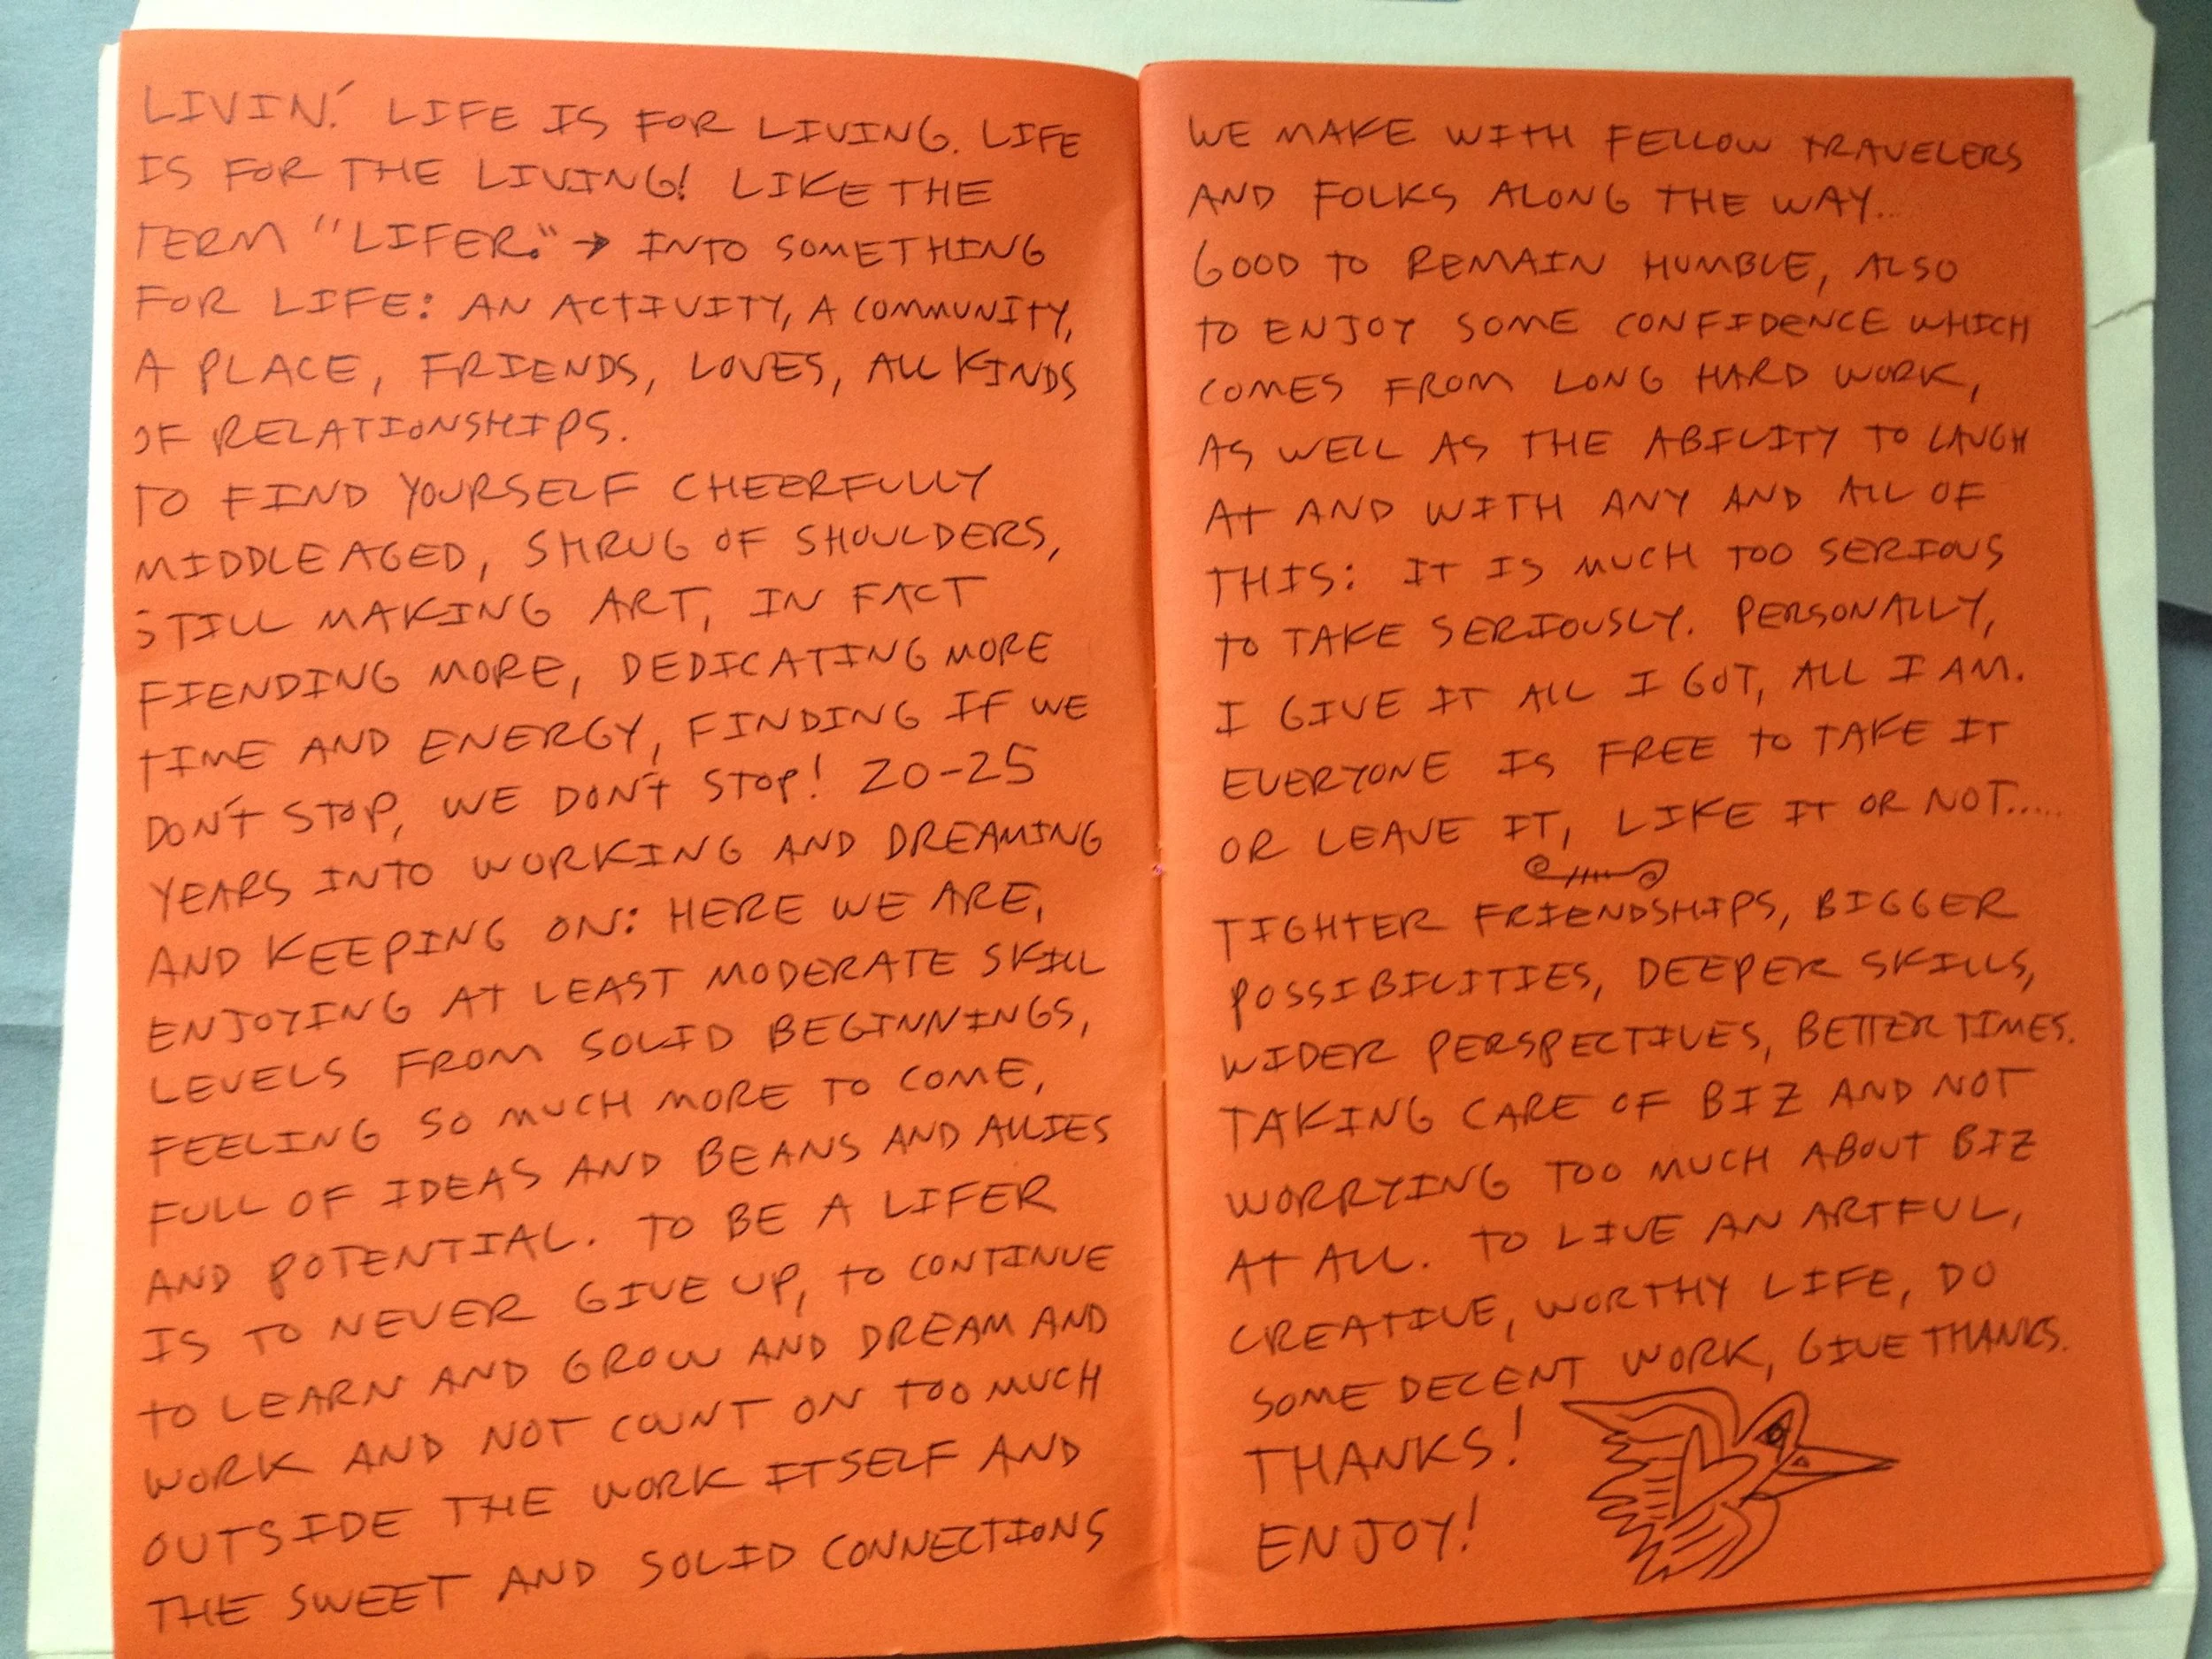 LIVIN'. LIFE IS FOR LIVING. LIFE
IS FOR THE LIVING! LIKE THE
TERM "LIFER." → INTO SOMETHING
FOR LIFE: AN ACTIVITY, A COMMUNITY,
A PLACE, FRIENDS, LOVES, ALL KINDS
OF RELATIONSHIPS.
TO FIND YOURSELF CHEERFULLY
MIDDLE AGED, SHRUG OF SHOULDERS,
STILL MAKING ART, IN FACT
FIENDING MORE, DEDICATING MORE
TIME AND ENERGY, FINDING IF WE
DON'T STOP, WE DON'T STOP! 20-25
YEARS INTO WORKING AND DREAMING
AND KEEPING ON: HERE WE ARE,
ENJOYING AT LEAST MODERATE SKILL
LEVELS FROM SOLID BEGINNINGS,
FEELING SO MUCH MORE TO COME,
FULL OF IDEAS AND BEANS AND ALLIES
AND POTENTIAL. TO BE A LIFER
IS TO NEVER GIVE UP, TO CONTINUE
TO LEARN AND GROW AND DREAM AND
WORK AND NOT COUNT ON TOO MUCH
OUTSIDE THE WORK ITSELF AND
THE SWEET AND SOLID CONNECTIONS
WE MAKE WITH FELLOW TRAVELERS
AND FOLKS ALONG THE WAY...
GOOD TO REMAIN HUMBLE, ALSO
TO ENJOY SOME CONFIDENCE WHICH
COMES FROM LONG HARD WORK,
AS WELL AS THE ABILITY TO LAUGH
AT AND WITH ANY AND ALL OF
THIS: IT IS MUCH TOO SERIOUS
TO TAKE SERIOUSLY. PERSONALLY,
I GIVE IT ALL I GOT, ALL I AM.
EVERYONE IS FREE TO TAKE IT
OR LEAVE IT, LIKE IT OR NOT.....
TIGHTER FRIENDSHIPS, BIGGER
POSSIBILITIES, DEEPER SKILLS,
WIDER PERSPECTIVES, BETTER TIMES.
TAKING CARE OF BIZ AND NOT
WORRYING TOO MUCH ABOUT BIZ
AT ALL. TO LIVE AN ARTFUL,
CREATIVE, WORTHY LIFE, DO
SOME DECENT WORK, GIVE THANKS.
THANKS!
ENJOY!